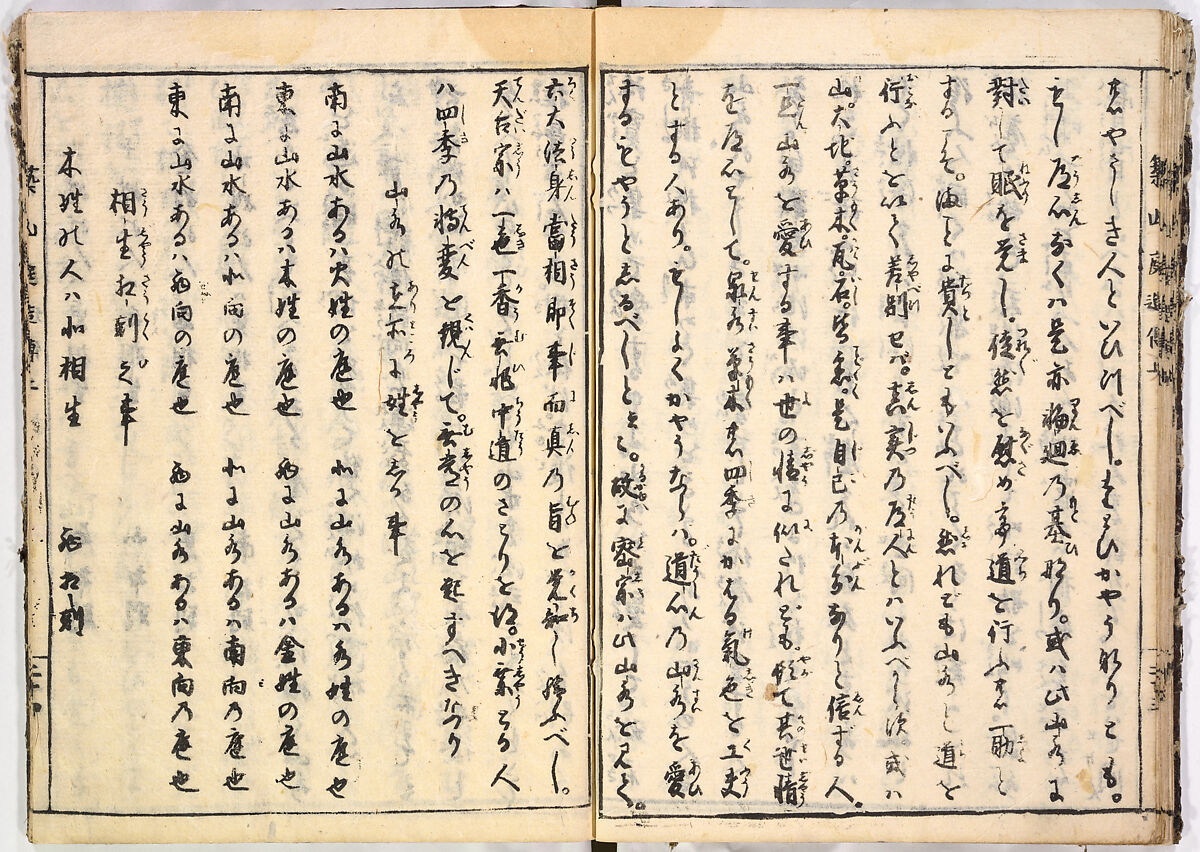 者やさしき人といひ川べし。たとひかやうなりとも。
もし道心なくハ是亦輪廻乃基なり。或ハ此山水に
對して眠を覚し。徒然を慰め幸道を行ふ者一助と
する人そ。ま事に貴しともいふべし。然れども山水と道を
行ふとを以く差別セバ。真実乃道人とハいふべからず。或ハ
山。大地。草木。瓦。石。皆悉く是自己乃本分なりと信ずる人。
一旦山水を愛する事ハ世の情に似たれども。頓て其世情
を道心として。泉水草木者四季にかはる氣色を工夫
とする人あり。もしよくかやうならハ。道人乃山水を愛
するもやうとゑるべしと云々。故に密家ハ此山水を見て。
六大法身當相即事而真乃旨を覚知し給ふべし。
天台家ハ一色一香無非中道のさとりを得。小乗なる人
ハ四季乃轉変を観じて。無常の心を起すべきなり
山水の在所に姓をしる事
南に山水あるハ火姓の庭也　北に山水あるハ水姓の庭也
東に山水あるハ木姓の庭也　西に山水あるハ金姓の庭也
南に山水あるハ北向の庭也　北に山水あるハ南向乃庭也
東に山水あるハ西向の庭也　西に山水あるハ東向乃庭也
相生相剋之事
木姓の人ハ北相生　西相剋